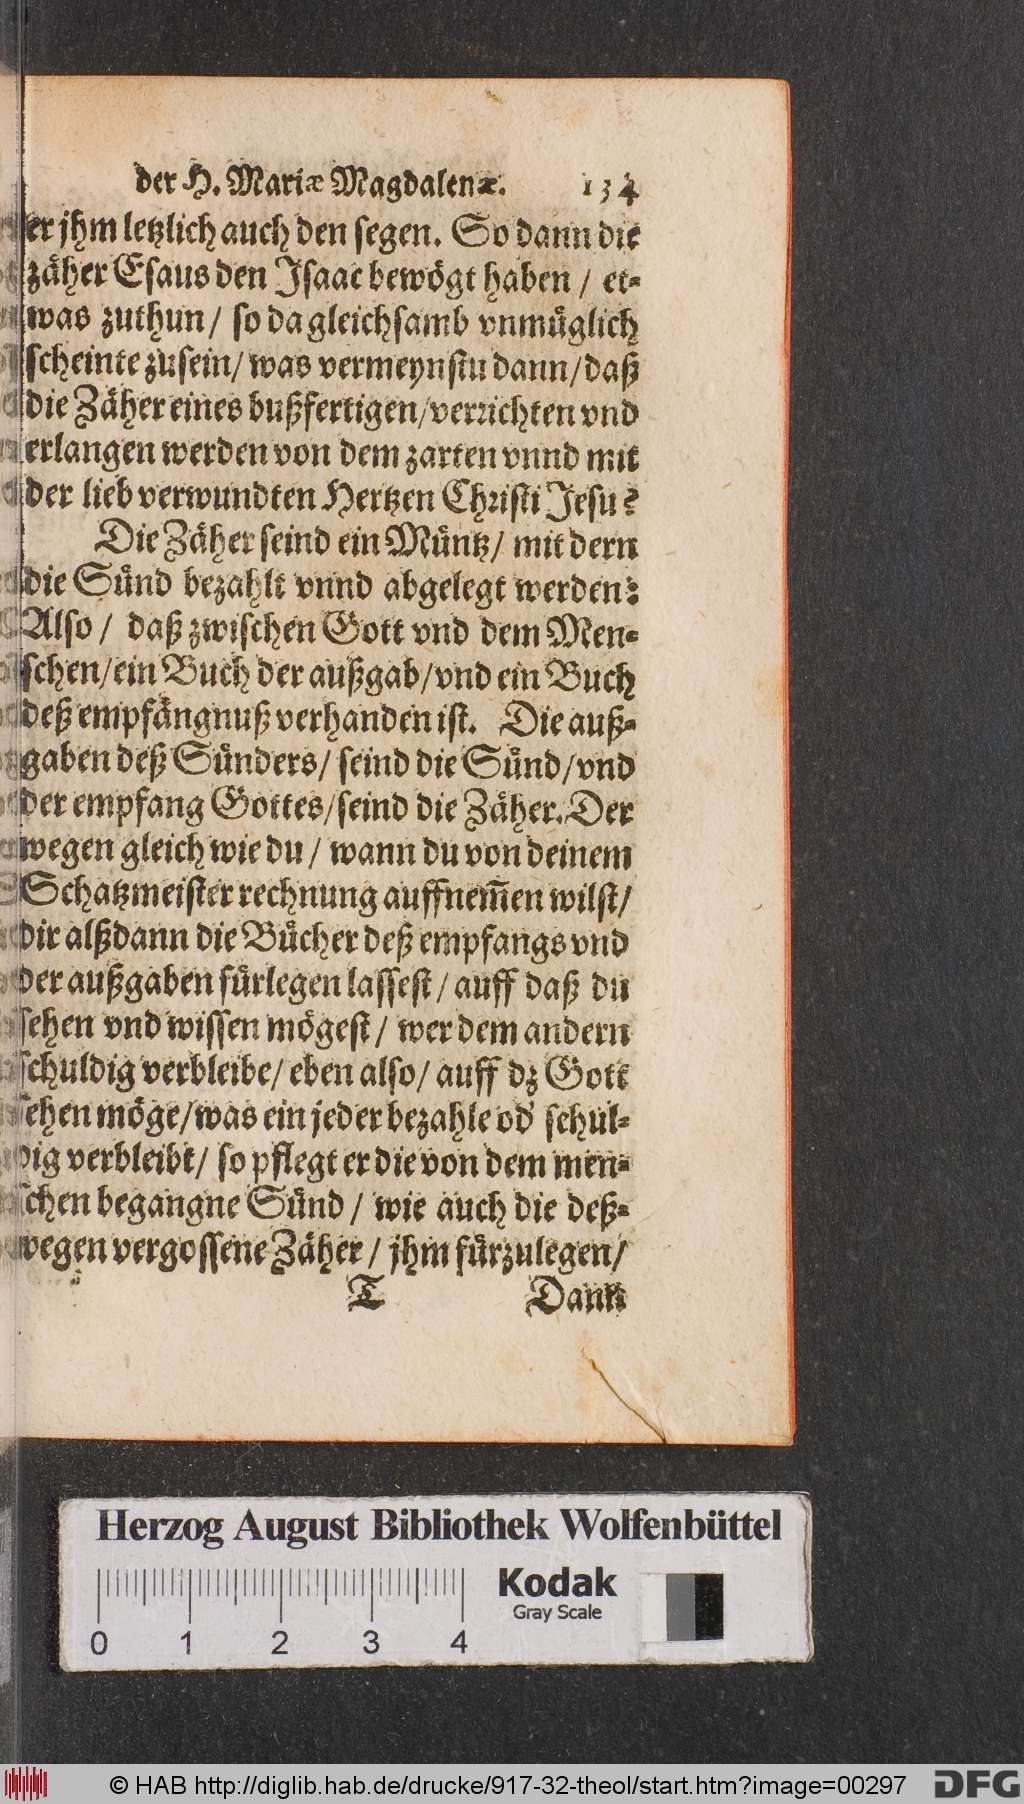 der H. Mariæ Magdalenæ. 134
er jhm letzlich auch den segen. So dann die
zäher Esaus den Isaac bewögt haben / et-
was zuthun / so da gleichsamb vnmüglich
scheinte zusein / was vermeynstu dann / daß
die Zäher eines bußfertigen / verrichten vnd
erlangen werden von dem zarten vnnd mit
der lieb verwundten Hertzen Christi Jesu?
Die Zäher seind ein Müntz / mit dern
die Sünd bezahlt vnnd abgelegt werden:
Also / daß zwischen Gott vnd dem Men-
schen / ein Buch der außgab / vnd ein Buch
deß empfängnuß verhanden ist. Die auß-
gaben deß Sünders / seind die Sünd / vnd
der empfang Gottes / seind die Zäher. Der
wegen gleich wie du / wann du von deinem
Schatzmeister rechnung auffnem̃en wilst /
dir alßdann die Bücher deß empfangs vnd
der außgaben fürlegen lassest / auff daß du
sehen vnd wissen mögest / wer dem andern
schuldig verbleibe / eben also / auff dz Gott
sehen möge / was ein jeder bezahle od' schul-
dig verbleibt / so pflegt er die von dem men-
schen begangne Sünd / wie auch die deß-
wegen vergossene Zäher / jhm fürzulegen /
T Dann
Herzog August Bibliothek Wolfenbüttel
Kodak
Gray Scale
0 1 2 3 4
© HAB http://diglib.hab.de/drucke/917-32-theol/start.htm?image=00297 DFG